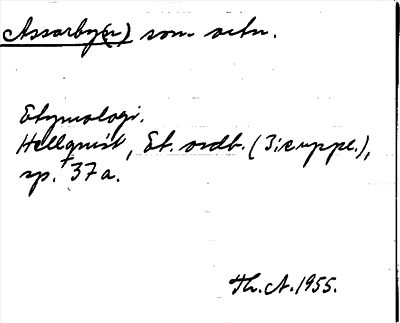 Assarby(n) som ortn.
Etymologi.
Hellquist, Et. ordb. (3:e uppl.),
sp. † 37 a.
Th. A. 1955.